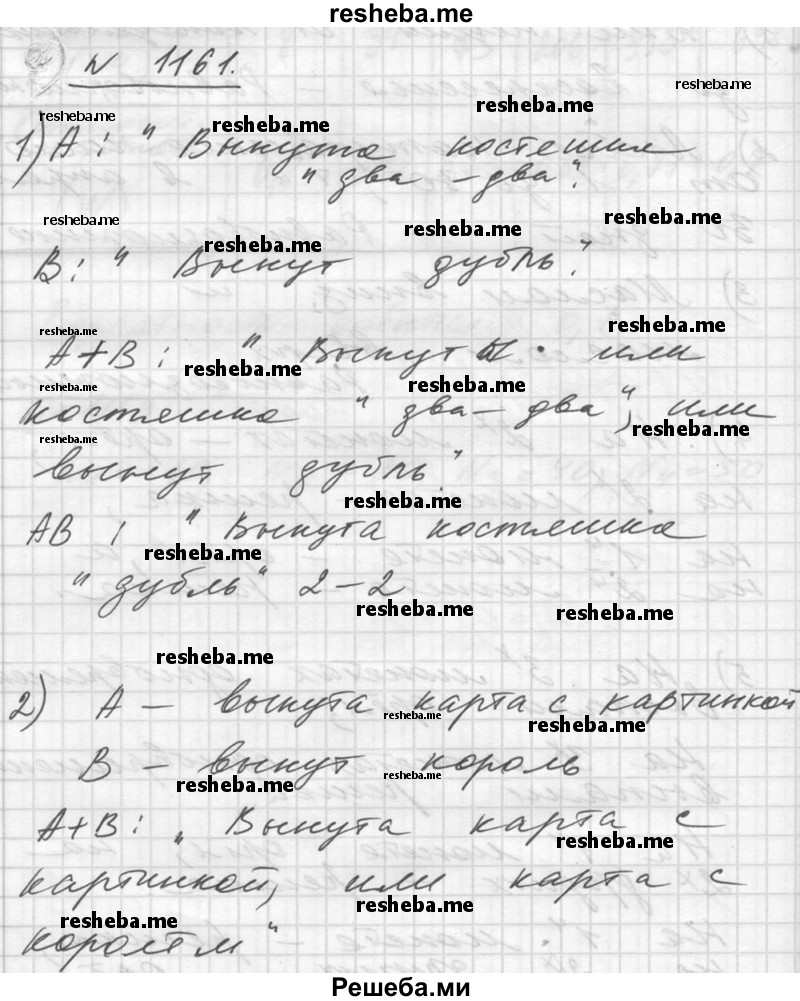 resheba.me
№ 1161.
1) А: " Вынута костешка
" два - два".
В: " Вынут дубль".
А+В: " Вынут или
костяшка " два - два", или
вынут дубль."
АВ : " Вынута костяшка
" дубль" 2-2
2) А — вынута карта с картинкой
В — вынут король
А+В: „ Вынута карта с
картинкой, или карта с
королем "
Решеба.ми